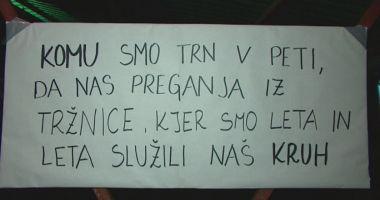 KOMU SMO TRN V PETI,
DA NAS PREGANJA IZ
TRŽNICE, KJER SMO LETA IN
LETA SLUŽILI NAŠ KRUH